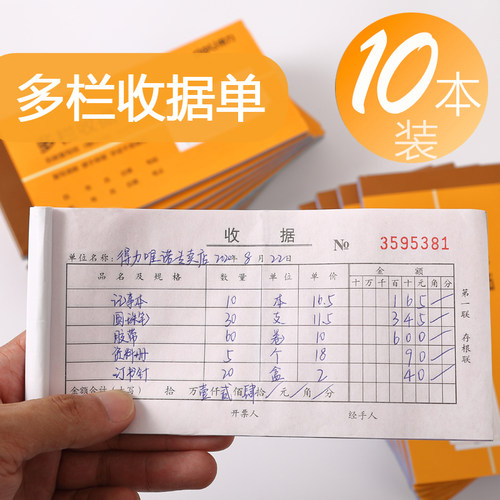 多栏收据单
10本装
收 据
№ 3595381
单位名称: 得力唯诺专卖店 2020年8月22日
品名及规格 数量 单位 单价 金额
十万千百十元角分
记事本 10 本 16.5 165/
圆珠笔 30 支 11.5 345/
胶带 60 卷 10 600/
资料册 5 个 18 90/
订书针 20 盒 2 40/
金额合计(大写) 拾 万壹仟贰佰肆拾/元/角/分
开票人 经手人
第一联 存根联